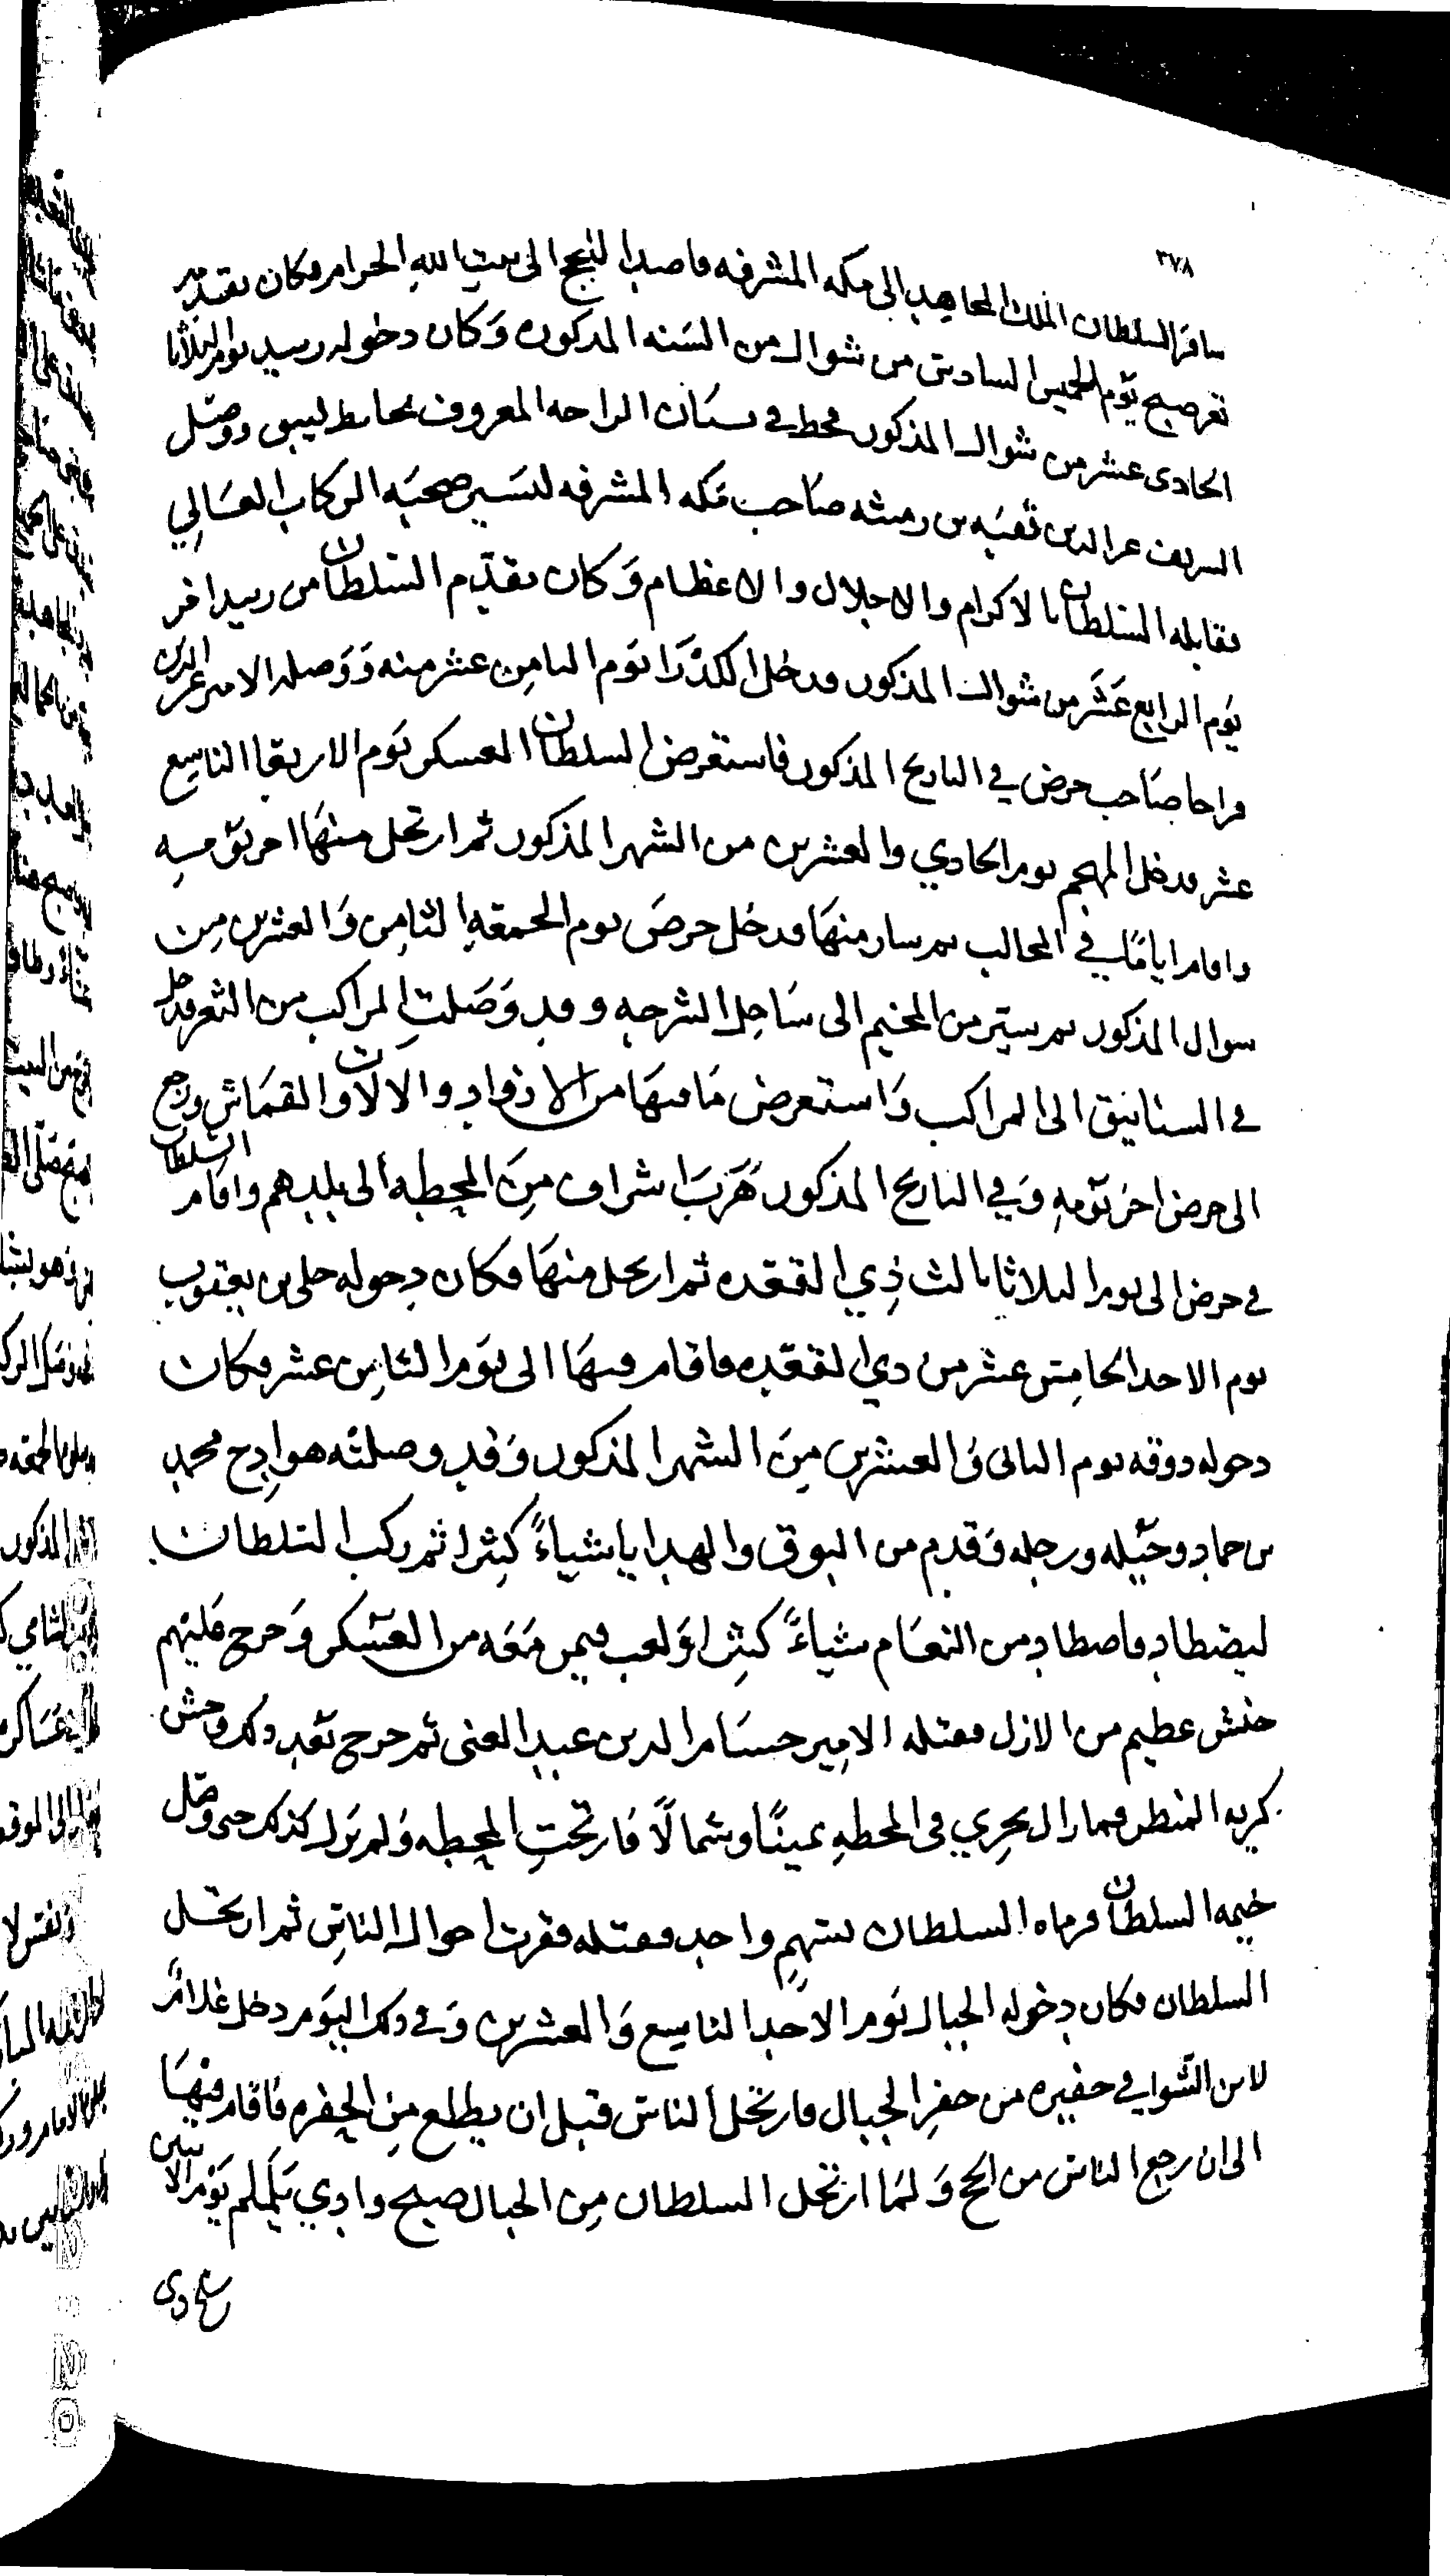 ٣٧٨
سافر السلطان الملك المجاهد الى مكه المشرفه قاصدا للحج الى بيت الله الحرام وكان تقدمه من
تعز صبح يوم الخميس السادس من شوال من السنه المذكوره وكان دخوله زبيد يوم الثلاثا
الحادى عشر من شوال المذكور فحط في بستان الراحه المعروف بحائط لبيق ووصل
الشريف عز الدين ثقبه بن رميثه صاحب مكه المشرفه ليسير صحبه الركاب العالي
فقابله السلطان بالاكرام والاجلال والاعظام وكان تقدم السلطان من زبيد اخر
يوم الرابع عشر من شوال المذكور فدخل الكدرا يوم الثامن عشر منه ووصله الامير عز الدين
صاحب حرض في التاريخ المذكور فاستعرض السلطان العسكر يوم الاربعا التاسع
عشر فدخل المهجم يوم الحادي والعشرين من الشهر المذكور ثم ارتحل منها اخر يومه
واقام اياما في المحالب ثم سار منها فدخل حرض يوم الجمعه الثامن والعشرين من
شوال المذكور ثم سير من المخيم الى ساحل الشرجه وقد وصلت المراكب من الثغر فدخل
في السنابيق الى المراكب واستعرض ما فيها من الازواد والالات والقماش ورجع
الى حرض اخر يومه وفي التاريخ المذكور هرب اشراف من المحطه الى بلدهم واقام السلطان
في حرض الى يوم الثلاثا ثالث ذي القعده ثم ارتحل منها فكان دخوله حلي بن يعقوب
يوم الاحد الخامس عشر من ذي القعده فاقام فيها الى يوم الثامن عشر فكان
دخوله دوقه يوم الثانى والعشرين من الشهر المذكور وقد وصلته هوادج محمد
بن حماد وخيله ورجله وقدم من النوق والهدايا شياء كثيرا ثم ركب السلطان
ليصطاد فاصطاد من النعام شياء كثيرا ولعب فيمن معه من العسكر وخرج عليهم
حنش عظيم من الازل فقتله الامير حسام الدين عبد الغنى ثم خرج بعد ذلك وحش
كريه المنظر فما زال يجري فى المحطه يمينا وشمالا فارتجت المحطه ولم يزل كذلك حتى وصل
خيمه السلطان فرماه السلطان بسهم واحد فقتله فقرت احوال الناس ثم ارتحل
السلطان فكان دخوله الجبال يوم الاحد التاسع والعشرين وفي ذلك اليوم دخل غلام
لابن الشواي في حفيره من حفر الجبال فارتحل الناس قبل ان يطلع من الحفره فاقام فيها
الى ان رجع الناس من الحج ولما ارتحل السلطان من الجبال صبح وادي يلملم يوم الاثنين